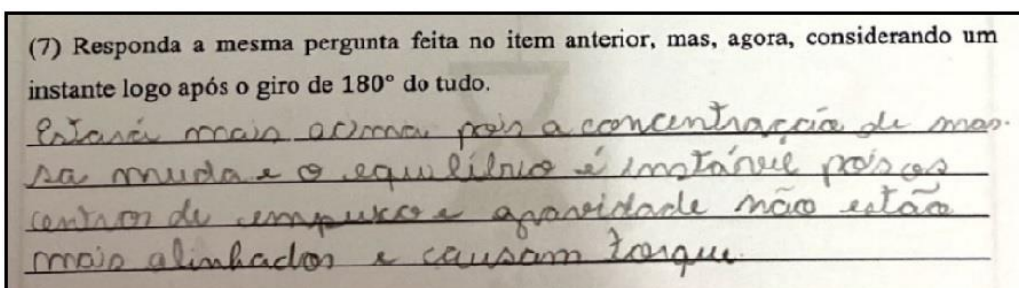 (7) Responda a mesma pergunta feita no item anterior, mas, agora, considerando um
instante logo após o giro de 180° do tudo.
Estará mais acima pois a concentração de mas-
sa muda e o equilíbrio é instável pois os
centros de empuxo e gravidade não estão
mais alinhados e causam torque.